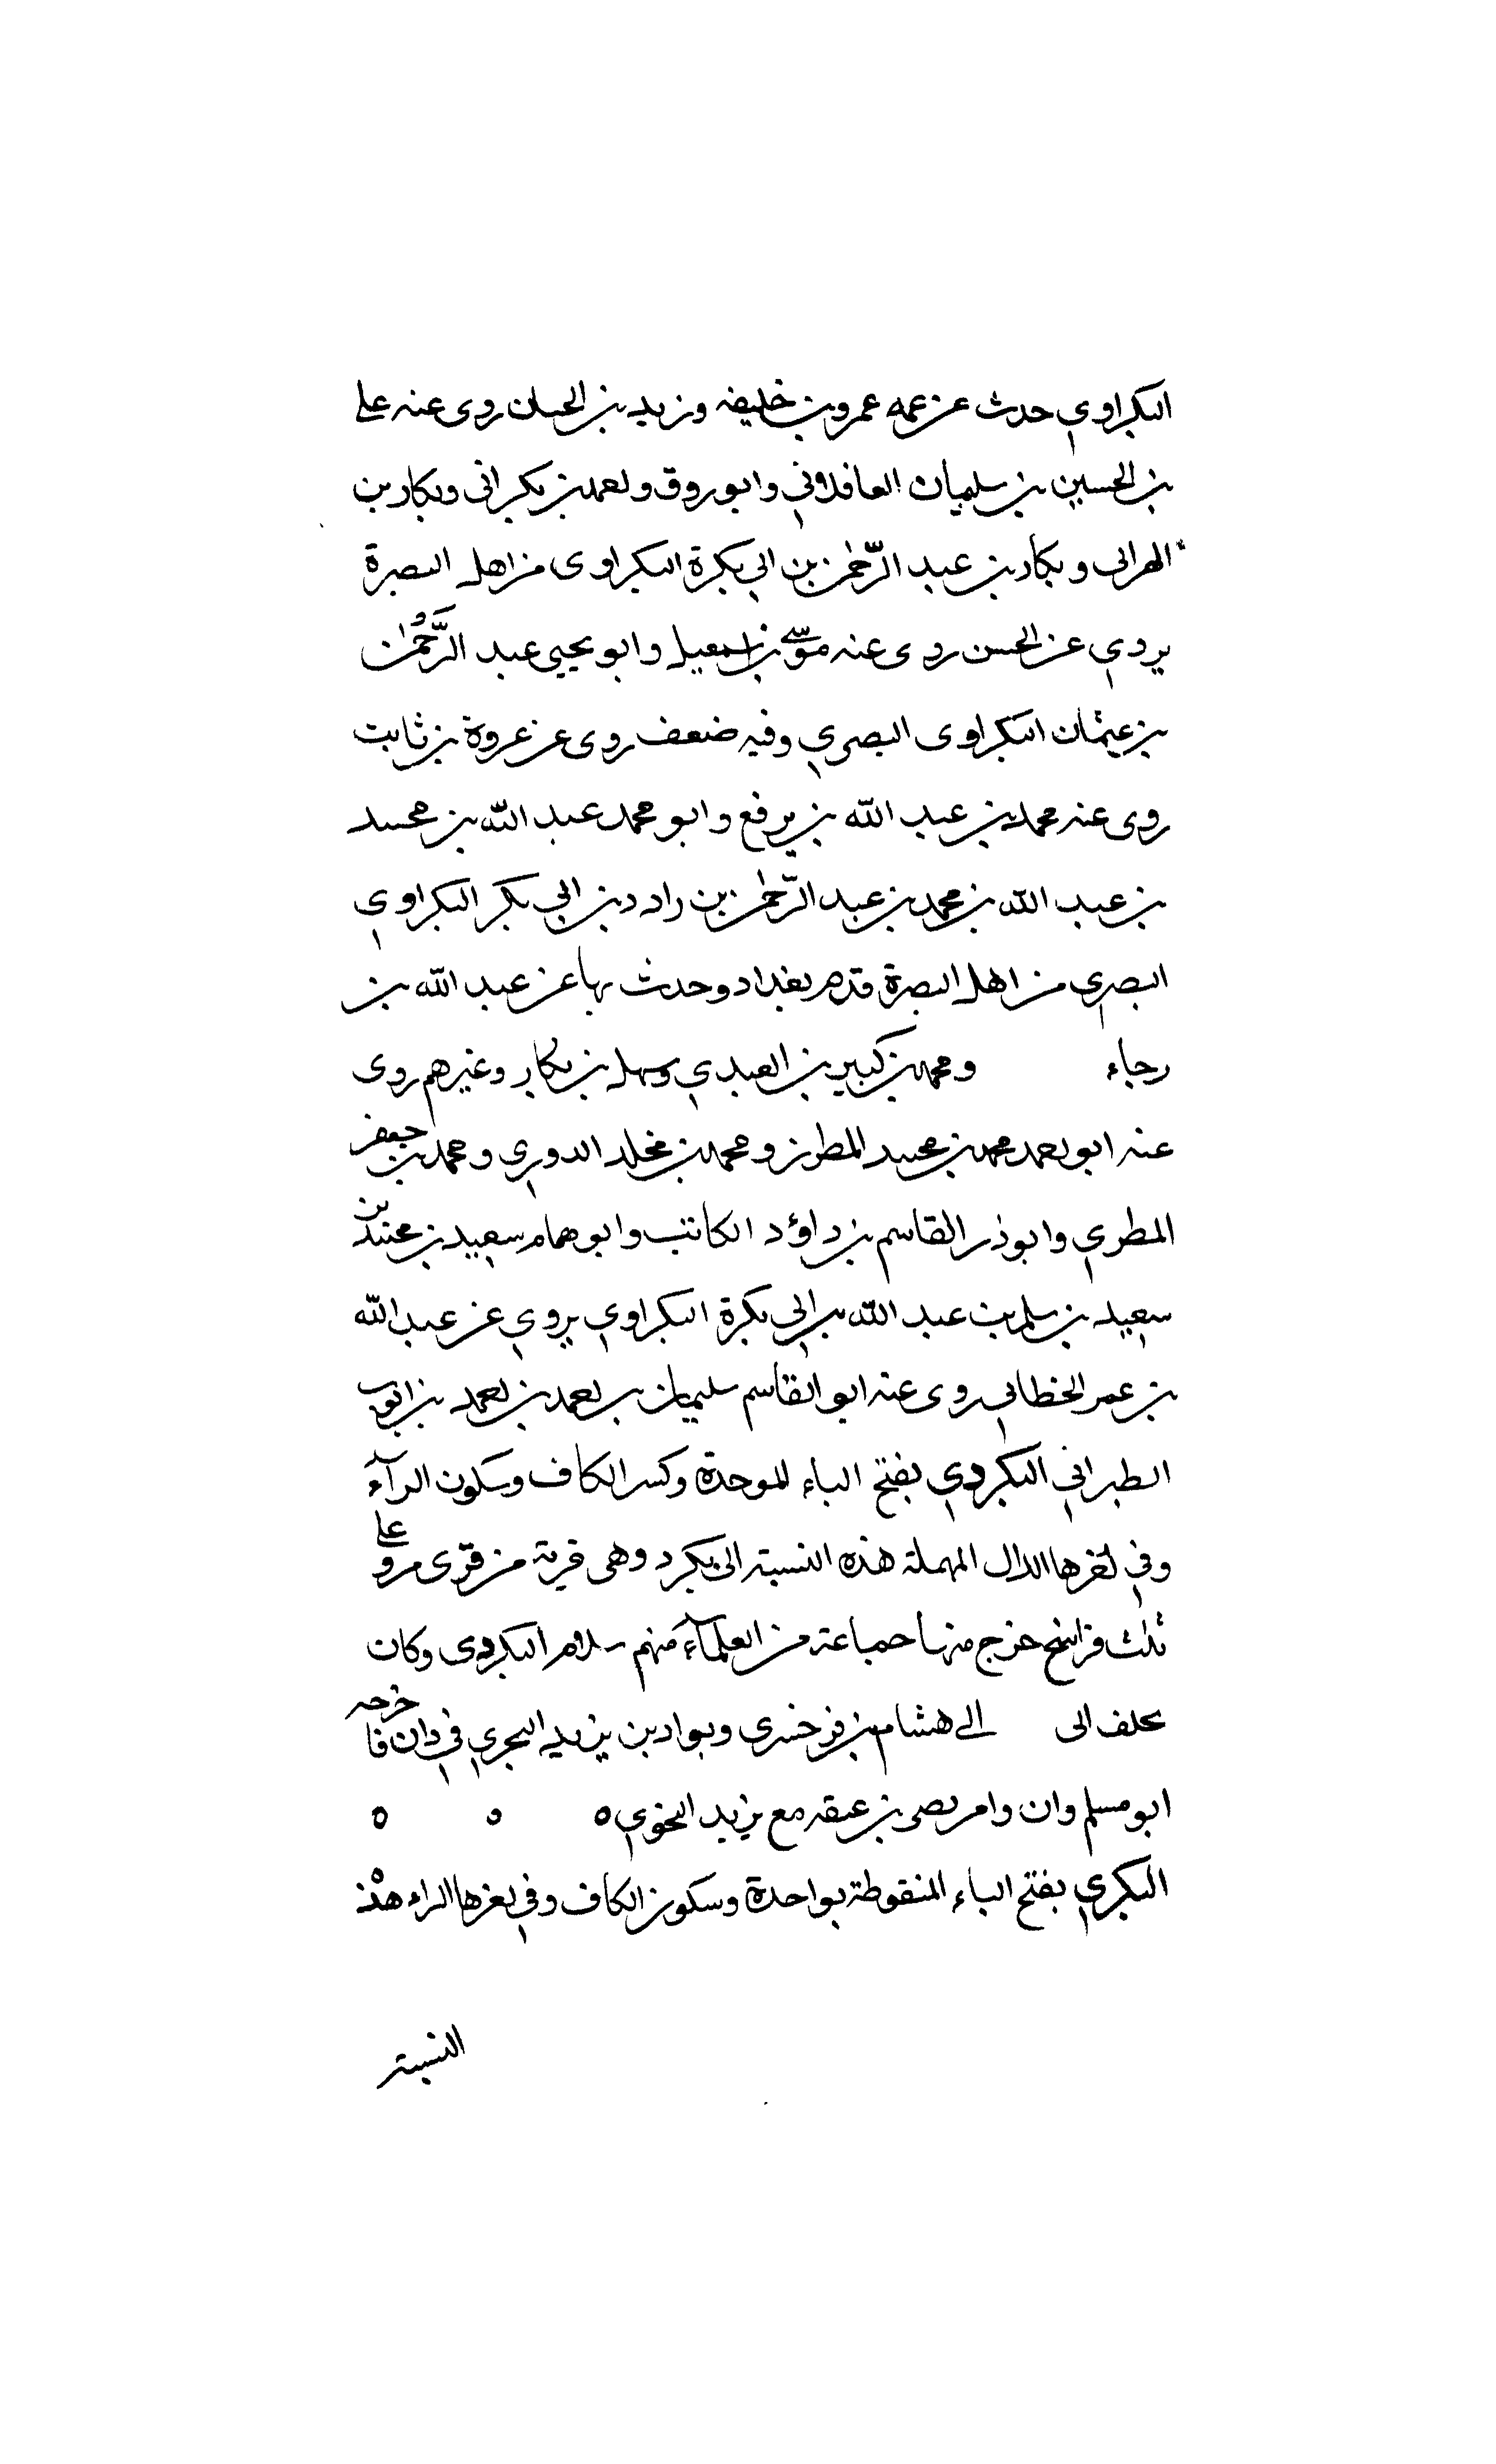 البكراوي حدث عن عمه عمرو بن خليفه وزيد بن الحبان روى عنه على
بن الحسين بن سليمان العافلاوني وابو روق واحمد بن بكراني وبكار بن
الهراني وبكار بن عبد الرحمن بن ابي بكرة البكراوى من اهل البصرة
يروي عن الحسن روى عنه موسى بن اسمعيل وابو يحيى عبد الرحمن
بن عثمان البكراوى البصري وفيه ضعف روى عن عروة بن ثابت
روى عنه محمد بن عبد الله بن يرفع وابو محمد عبد الله بن محمد
بن عبد الله بن محمد بن عبد الرحمن بن رادد بن ابي بكر البكراوي
البصري من اهل البصرة قدم بغداد وحدث بها عن عبد الله بن
رجاء ومحمد بن كبير بن العبدي وسهل بن بكار وغيرهم روى
عنه ابو احمد محمد بن محمد المطرز ومحمد بن مخلد الدوري ومحمد بن جعفر
المطري وابو ذر القاسم بن داؤد الكاتب وابو همام سعيد بن محمد بن
سعيد بن سلم بن عبد الله بن ابي بكرة البكراوي يروي عن عبد الله
بن عمر الخطابي روى عنه ابو القاسم سليمان بن احمد بن احمد بن ايوب
الطبراني البكردي بفتح الباء الموحدة وكسر الكاف وسكون الرآء
وفي اخرها الدال المهملة هذه النسبة الى بكرد وهى قرية من قرى مرو على
ثلث فراسخ خرج منها جماعة من العلمآء منهم سلام البكردى وكان
يخلف الى الى هشام بن فرخسرى وبواد بن يزيد البحري في دان فا خرجه
ابو مسلم وان وامر بصى بن عبقه مع يزيد النحوي ه ه ه
البكري بفتح الباء المنقوطة بواحدة وسكون الكاف وفي اخرها الراء هذه
النسبة